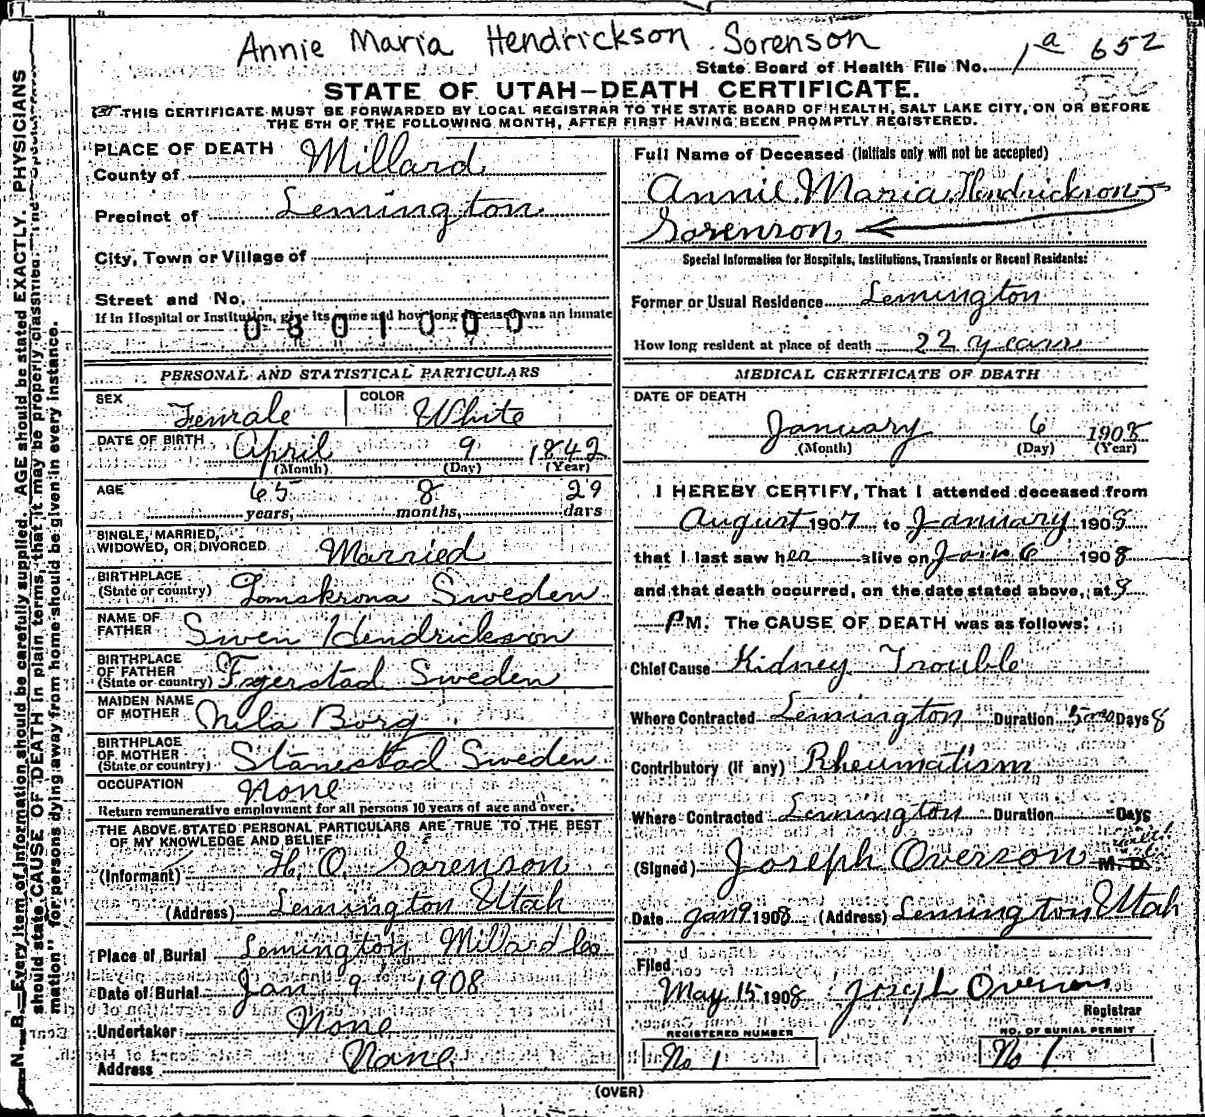 Annie Maria Hendrickson Sorenson
State Board of Health File No. 1a 652
536
STATE OF UTAH—DEATH CERTIFICATE.
THIS CERTIFICATE MUST BE FORWARDED BY LOCAL REGISTRAR TO THE STATE BOARD OF HEALTH, SALT LAKE CITY, ON OR BEFORE
THE 5TH OF THE FOLLOWING MONTH, AFTER FIRST HAVING BEEN PROMPTLY REGISTERED.
PLACE OF DEATH
County of Millard
Precinct of Lemington
City, Town or Village of
Street and No.
If in Hospital or Institution, give its name and how long deceased was an inmate
0801000
PERSONAL AND STATISTICAL PARTICULARS
SEX Female COLOR White
DATE OF BIRTH April 9 1842
(Month) (Day) (Year)
AGE 65 8 29
years, months, days
SINGLE, MARRIED,
WIDOWED, OR DIVORCED Married
BIRTHPLACE
(State or country) Lomskrona Sweden
NAME OF
FATHER Swen Hendrickson
BIRTHPLACE
OF FATHER
(State or country) Fjerstad Sweden
MAIDEN NAME
OF MOTHER Nila Borg
BIRTHPLACE
OF MOTHER
(State or country) Stanestad Sweden
OCCUPATION None
Return remunerative employment for all persons 10 years of age and over.
THE ABOVE STATED PERSONAL PARTICULARS ARE TRUE TO THE BEST
OF MY KNOWLEDGE AND BELIEF
(Informant) H. O. Sorenson
(Address) Lemington Utah
Place of Burial Lemington Millard Co
Date of Burial Jan 9 1908
Undertaker None
Address None
Full Name of Deceased (Initials only will not be accepted)
Annie Maria Hendrickson
Sorenson
Special Information for Hospitals, Institutions, Transients or Recent Residents:
Former or Usual Residence Lemington
How long resident at place of death 22 years
MEDICAL CERTIFICATE OF DEATH
DATE OF DEATH
January 6 1908
(Month) (Day) (Year)
I HEREBY CERTIFY, That I attended deceased from
August 1907 to January 1908
that I last saw her alive on Jan 6 1908
and that death occurred, on the date stated above, at 3
P M. The CAUSE OF DEATH was as follows:
Chief Cause Kidney Trouble
Where Contracted Lemington Duration 5 mo Days 8
Contributory (if any) Rheumatism
Where Contracted Lemington Duration Days
(Signed) Joseph Overson M. D.
Date Jan 9 1908 (Address) Lemington Utah
Filed
May 15 1908 Joseph Overson
Registrar
REGISTERED NUMBER NO. OF BURIAL PERMIT
No 1 No 1
(OVER)
N. B.—Every item of information should be carefully supplied. AGE should be stated EXACTLY. PHYSICIANS
should state CAUSE OF DEATH in plain terms, that it may be properly classified. The
mation" for persons dying away from home should be given in every instance.